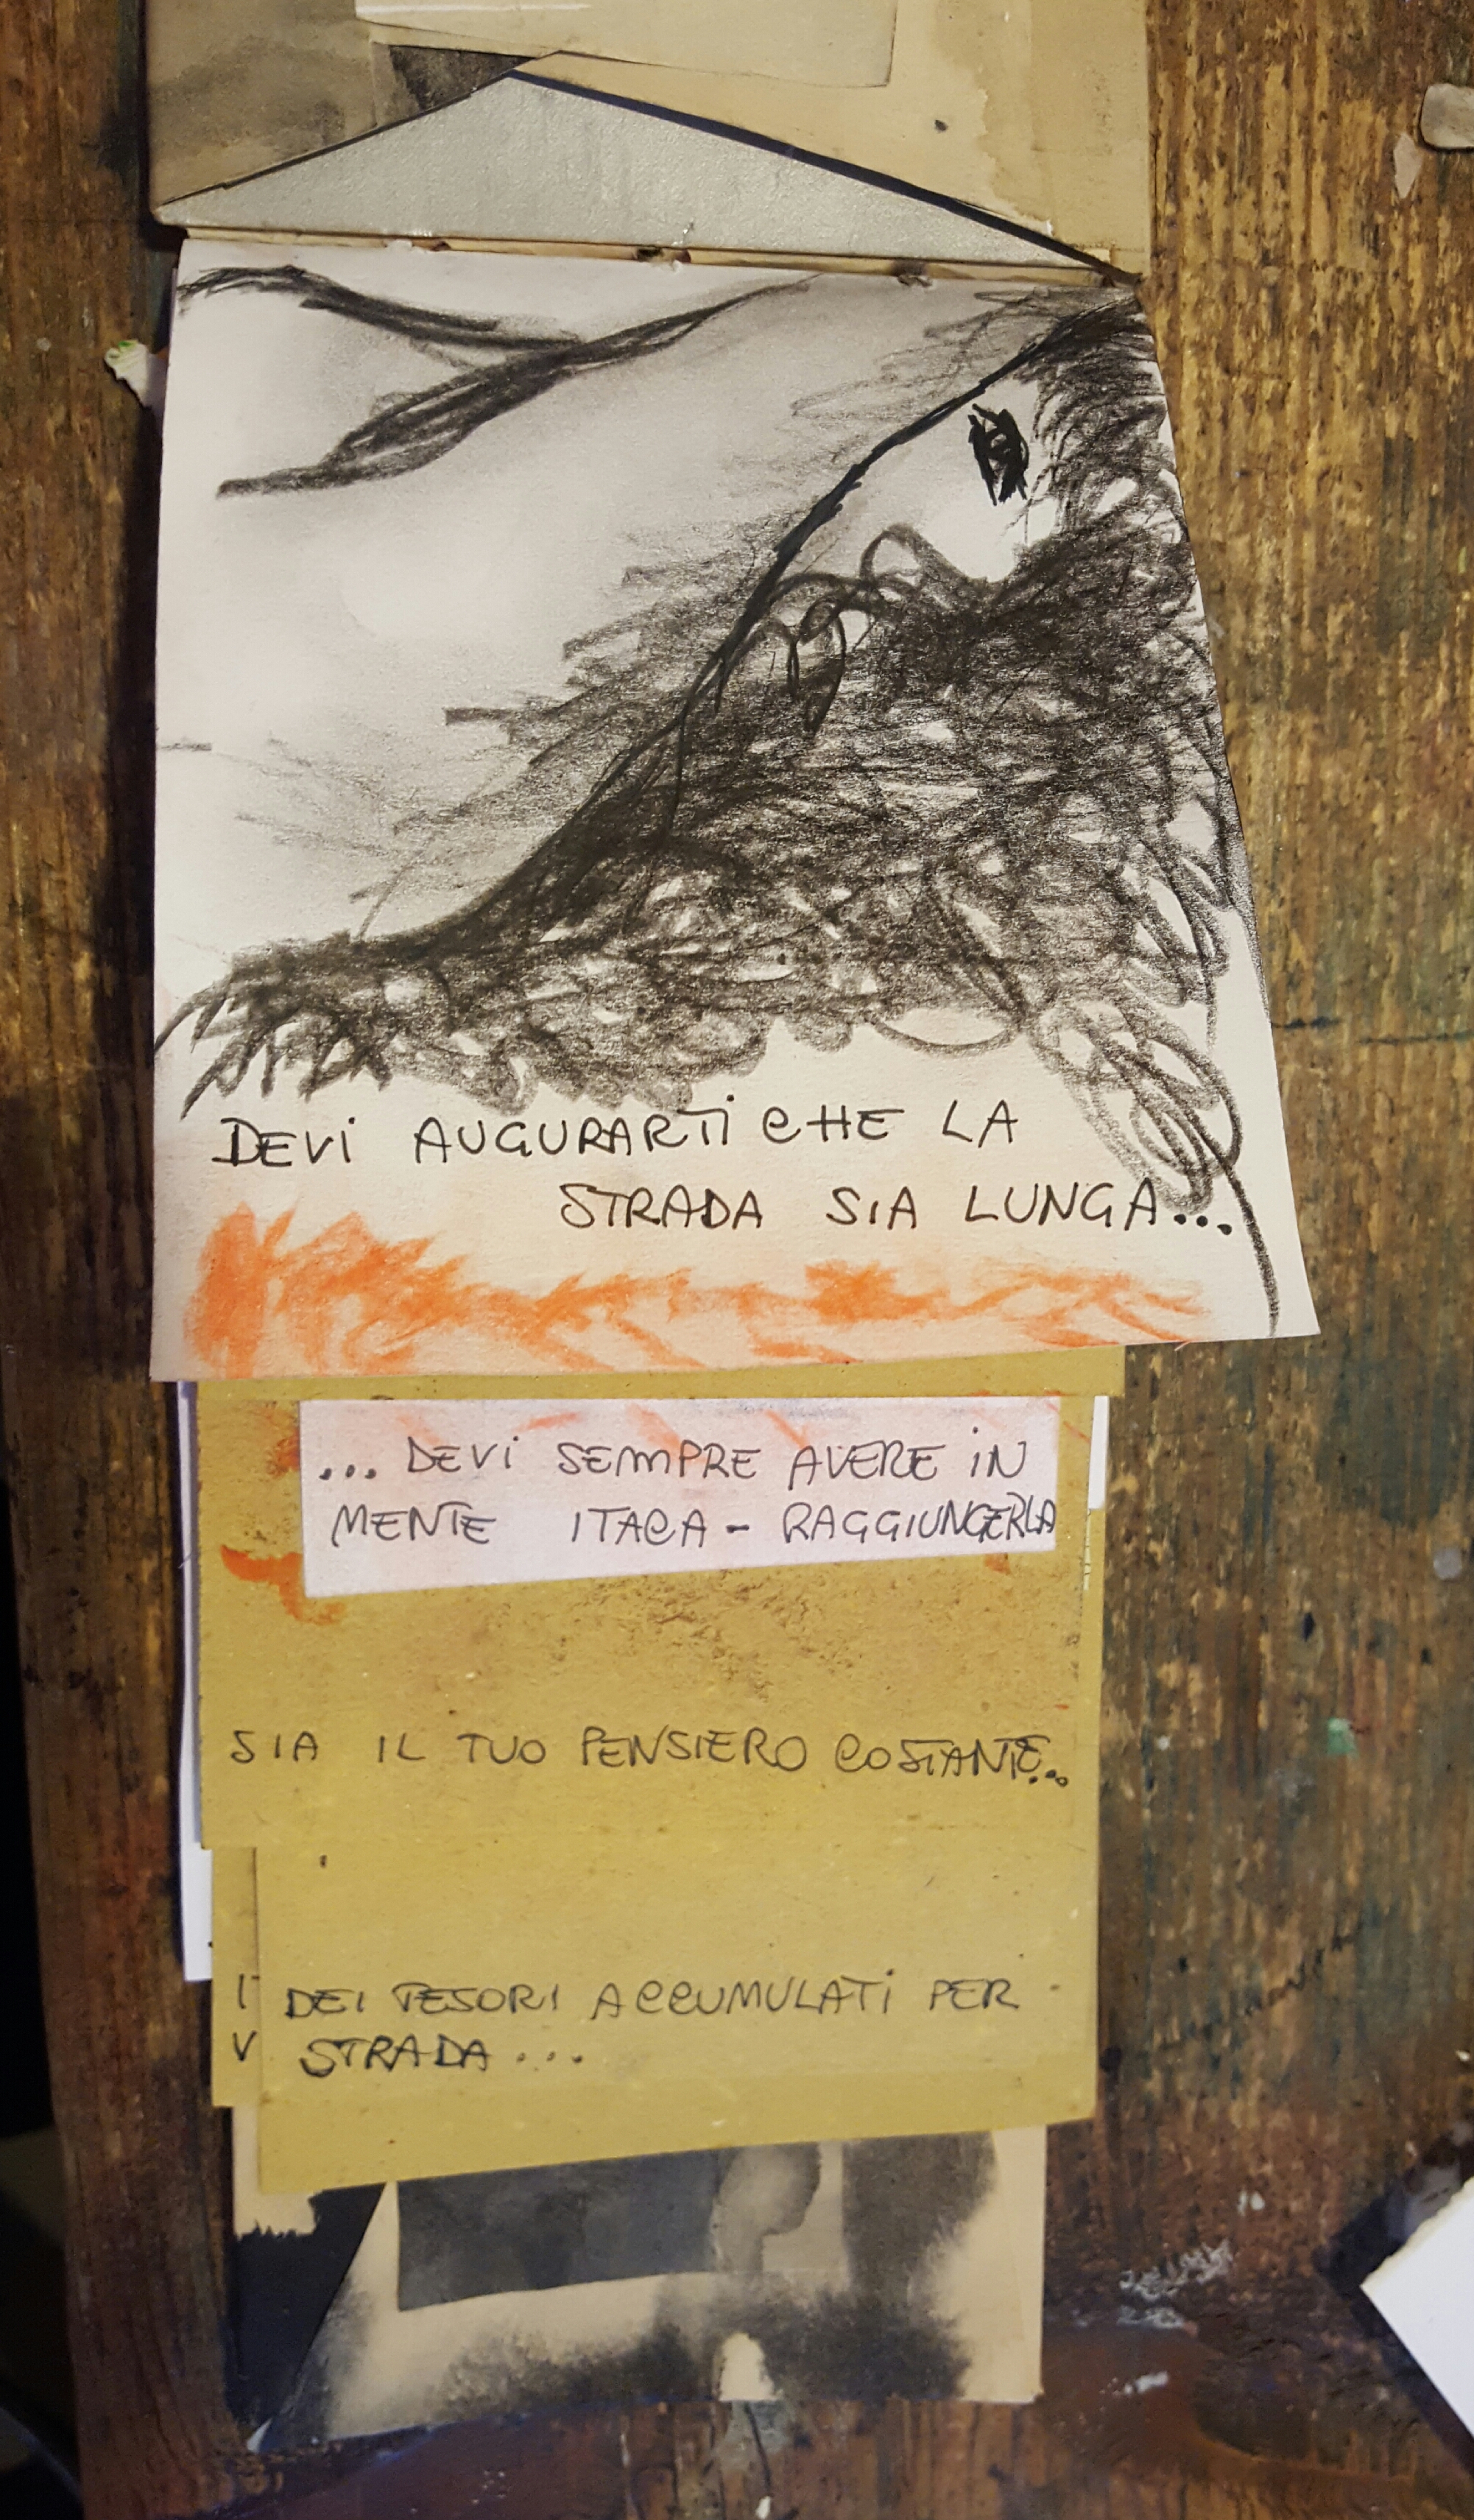 DEVI AUGURARTI CHE LA
STRADA SIA LUNGA...
... DEVI SEMPRE AVERE IN
MENTE ITACA - RAGGIUNGERLA
SIA IL TUO PENSIERO COSTANTE...
DEI TESORI ACCUMULATI PER
STRADA...